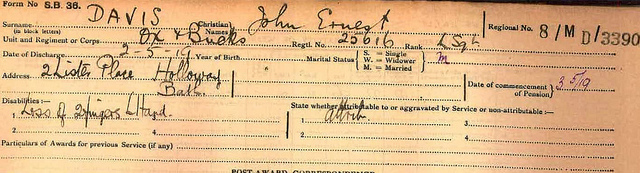 Form No S.B. 36.
Surname DAVIS (Christian) Names John Ernest Regional No. 8/MD/3390
(in block letters)
Unit and Regiment or Corps Ox & Bucks Regtl. No. 25616 Rank L Sgt
Date of Discharge 2-5-19 Year of Birth Marital Status S. = Single W. = Widower M. = Married M
Address 2 Lister Place Holloway Bath Date of commencement of Pension 3 5/19
Disabilities:— State whether attributable to or aggravated by Service or non-attributable:—
1. Loss of 2 fingers L Hand. 3. 1. Attrib. 3.
2. 4. 2. 4.
Particulars of Awards for previous Service (if any)
POST-AWARD CORRESPONDENCE